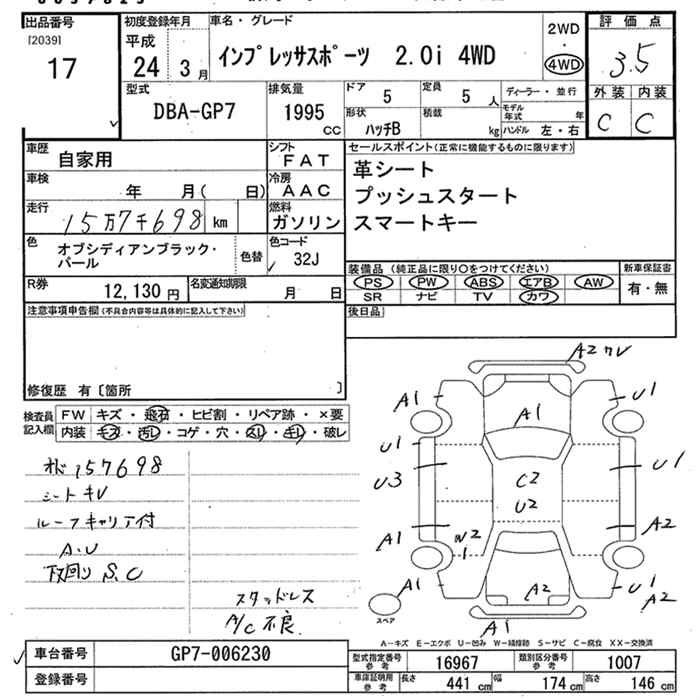 出品番号
[2039]
17
初度登録年月
平成
24 3 月
車名・グレード
インプレッサスポーツ 2.0i 4WD
2WD
・
4WD
評価点
3.5
外装 内装
C C
型式
DBA-GP7
排気量
1995
CC
ドア
5
定員
5 人
形状
ハッチB
積載
kg
ディーラー・並行
モデル年式 年
ハンドル 左・右
車歴
自家用
シフト
FAT
車検
年 月( 日)
冷房
AAC
走行
15万7千698 km
燃料
ガソリン
色
オブシディアンブラック・
パール
色替
色コード
32J
R券
12,130 円
名変通知期限
月 日
セールスポイント(正常に機能するものに限ります)
革シート
プッシュスタート
スマートキー
装備品(純正品に限り○をつけてください)
PS PW ABS エアB AW
SR ナビ TV カワ
新車保証書
有・無
後日品
注意事項申告欄(不具合内容等は具体的に記入して下さい)
修復歴 有〔箇所 〕
検査員
記入欄
FW キズ・飛石・ヒビ割・リペア跡・×要
内装 キズ・汚レ・コゲ・穴・スレ・キレ・破レ
157698
シートキレ
ルーフキャリア付
A.U
下回り S.C
スタッドレス
A/C不良
A2
A1
U1
A1
U1
U3
U1
C2
U2
A1
A2
W2
1
A1
A2
U1
A2
A1
スペア
A-キズ E-エクボ U-凹み W-補修跡 S-サビ C-腐食 XX-交換済
車台番号
GP7-006230
登録番号
型式指定番号
参考
16967
類別区分番号
参考
1007
車庫証明用
参考
長さ
441 cm
幅
174 cm
高さ
146 cm